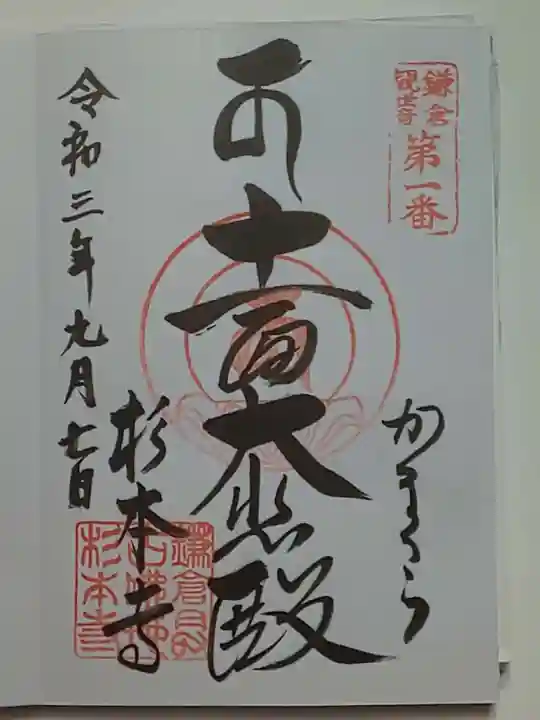 鎌倉
観世音
第一番
かまくら
十一面大悲殿
杉本寺
令和三年九月七日
杉本寺